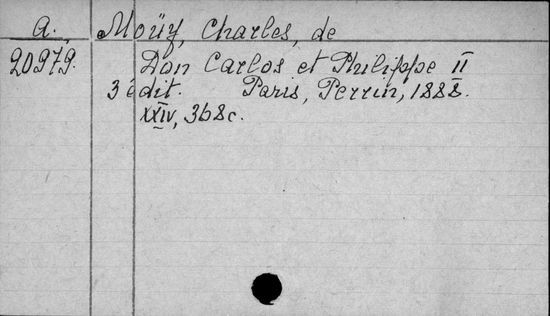 A. Moüy, Charles, de
20979. Don Carlos et Philippe II
3 édit. Paris, Perrin, 1888.
XXIV, 368c.